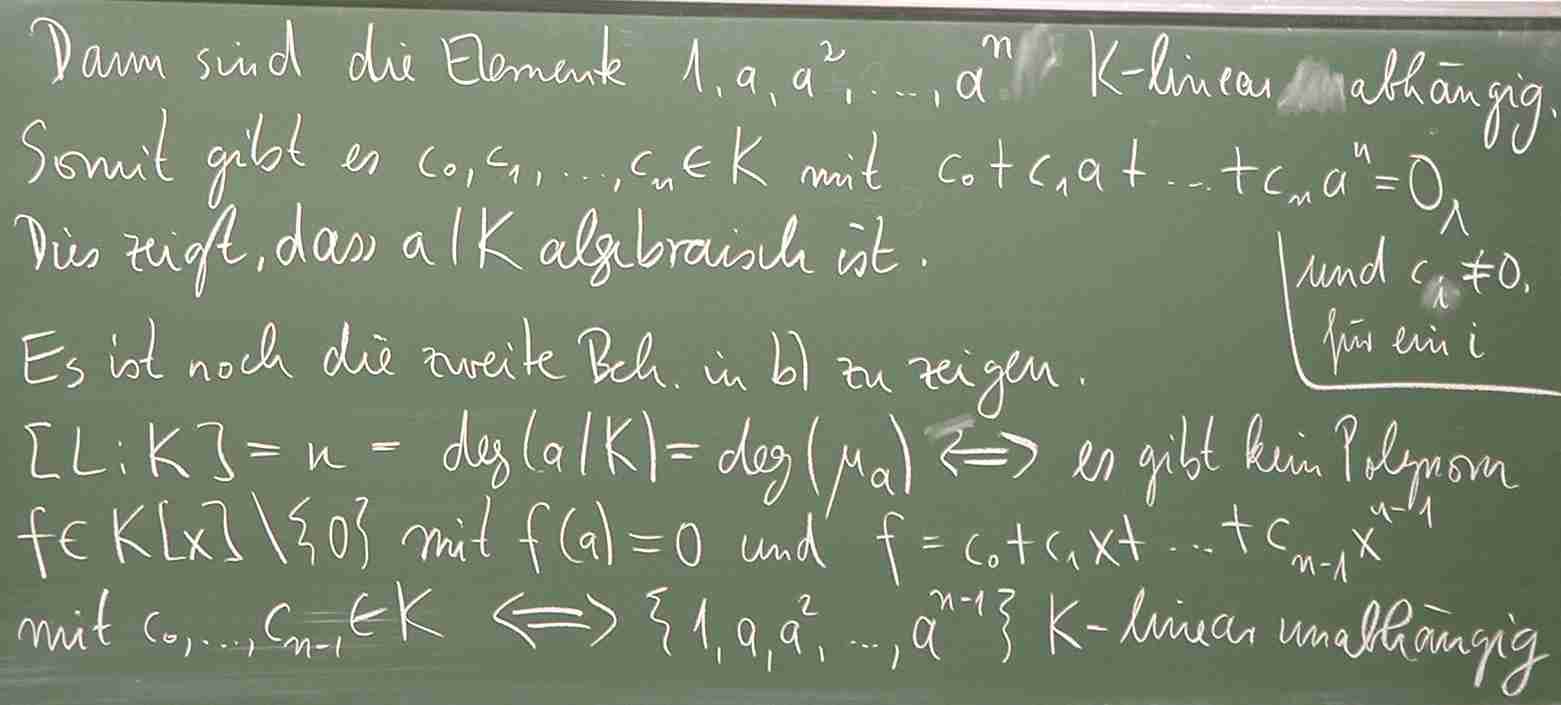 Dann sind die Elemente 1, a, a², ..., aⁿ K-linear abhängig.
Somit gibt es c₀, c₁, ..., cₙ ∈ K mit c₀ + c₁a + ... + cₙaⁿ = 0
und cᵢ ≠ 0.
für ein i
Dies zeigt, dass a/K algebraisch ist.
Es ist noch die zweite Beh. in b) zu zeigen.
[L:K] = n = deg(a/K) = deg(μₐ) ⟺ es gibt kein Polynom
f ∈ K[x]\{0} mit f(a) = 0 und f = c₀ + c₁x + ... + cₙ₋₁xⁿ⁻¹
mit c₀, ..., cₙ₋₁ ∈ K ⟺ {1, a, a², ..., aⁿ⁻¹} K-linear unabhängig